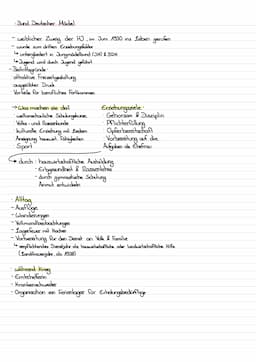 Bund Deutscher Mädel
- weiblicher Zweig der HJ, im Juni 1930 ins Leben gerufen
- wurde zum dritten Erziehungsfelde
↳ untergliedert in Jungmädelbund (JM) & BDM
↳ Jugend wird durch Jugend geführt
- Beitrittsgründe:
attraktive Freizeitgestaltung
ausgeübter Druck
Vorteile für berufliches Fortkommen
→ Was machen sie da?
weltanschauliche Schulungskurse
Volks- und Rassenkunde
kulturelle Erziehung mit Liedern
Aneignung hauswirt. Fähigkeiten
Sport
Erziehungsziele:
Gehorsam & Disziplin
Pflichterfüllung
Opferbereitschaft
Vorbereitung auf die
Aufgaben als Ehefrau
→ durch: hauswirtschaftliche Ausbildung
- Körpergesundheit & Rassenlehre
- durch gymnastische Schulung
Anmut entwickeln
Alltag
- Ausflüge
- Wanderungen
- Lagerfeuer mit Kochen
- Vorbereitung für den Dienst an Volk & Familie
↳ verpflichtendes Dienstjahr als hauswirtschaftliche oder landwirtschaftliche Hilfe
während Krieg
- Erntehelferin
- Krankenschwester
- Organisation von Ferienlager für Erholungsbedürftige